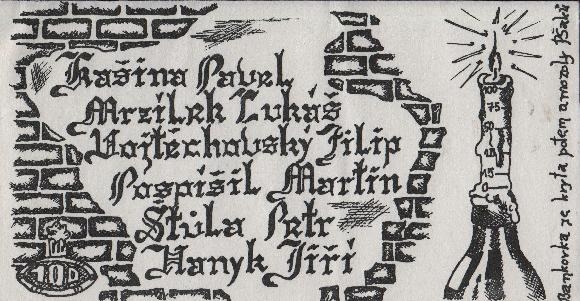 Kašina Pavel
Mrzílek Lukáš
Vojtěchovský Filip
Pospíšil Martin
Štůla Petr
Hanyk Jiří
100
75
50
15
0
100
Bankovka ze kryta potem a mozoly